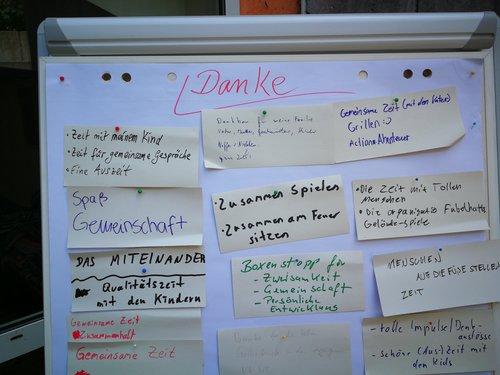 Danke
• Zeit mit meinem Kind
• Zeit für gemeinsame Gespräche
• Eine Auszeit
Dankbar für meine Familie
Vater, Mutter,
Gemeinsame Zeit (mit den Vätern)
Grillen :-)
Action + Abenteuer
Spaß
Gemeinschaft
• Zusammen Spielen
• Zusammen am Feuer
sitzen
• Die Zeit mit Tollen
Menschen
• Die organisatio Fabelhafter
Gelände-Spiele
DAS MITEINANDER
Qualitätszeit
mit den Kindern
Boxenstopp für
- Zweisamkeit
- Gemeinschaft
- Persönliche
Entwicklung
MENSCHEN
AUF DIE FÜßE STELLEN
ZEIT
Gemeinsame Zeit
Zusammenhalt
Gemeinsame Zeit
- tolle Impulse/Denk-
anstösse
- schöne (Aus-)Zeit mit
den Kids